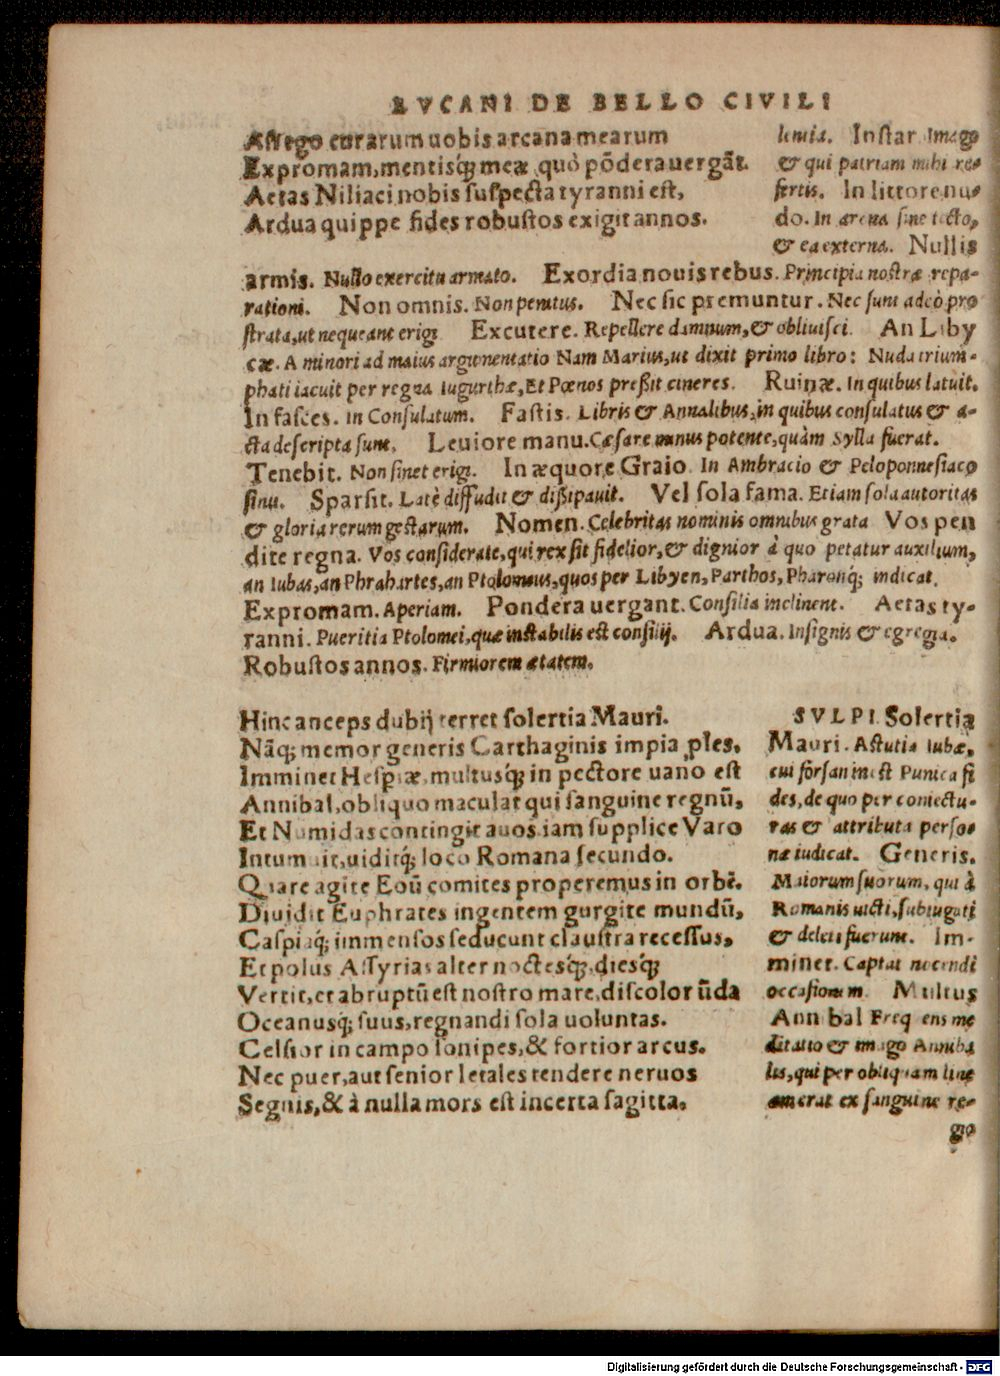 LVCANI DE BELLO CIVILI
Ast ego curarum uobis arcana mearum
Expromam, mentisq; meæ quò põdera uergãt.
Aetas Niliaci nobis suspecta tyranni est,
Ardua quippe fides robustos exigit annos.
limia. Instar Imago
& qui patriam mihi re=
fertis. In littore nu=
do. In arena sine tecto,
& ea externa. Nullis
armis. Nullo exercitu armato. Exordia nouis rebus. Principia nostræ repa-
rationi. Non omnis. Non penitus. Nec sic premuntur. Nec sunt adeò pro
strata, ut nequeant erigi Excutere. Repellere damnum, & obliuisci. An Liby
cæ. A minori ad maius argumentatio Nam Marius, ut dixit primo libro: Nuda trium-
phati iacuit per regna Iugurthæ, Et Pœnos preßit cineres. Ruinæ. In quibus latuit.
In fasces. In Consulatum. Fastis. Libris & Annalibus, in quibus consulatus & a-
cta descripta sunt. Leuiore manu. Cæsare minus potente, quàm Sylla fuerat.
Tenebit. Non sinet erigi. In æquore Graio In Ambracio & Peloponnesiaco
sinu. Sparsit. Latè diffudit & dißipauit. Vel sola fama. Etiam sola autoritas
& gloria rerum gestarum. Nomen. Celebritas nominis omnibus grata Vos pen
dite regna. Vos considerate, qui rex sit fidelior, & dignior à quo petatur auxilium,
an Iubas, an Phrahartes, an Ptolomæus, quos per Libyen, Parthos, Pharonq; indicat.
Expromam. Aperiam. Pondera uergant. Consilia inclinent. Aetas ty-
ranni. Pueritia Ptolomei, quæ instabilis est consilij. Ardua. Insignis & egregia.
Robustos annos. Firmiorem ætatem.
Hinc anceps dubij terret solertia Mauri.
Nãq; memor generis Carthaginis impia ples,
Imminet Hesp͛iæ, multusq; in pectore uano est
Annibal, obliquo maculat qui sanguine regnũ,
Et Numidas contingit auos. iam supplice Varo
Intumuit, uiditq; loco Romana secundo.
Quare agite Eoũ comites properemus in orbẽ.
Diuidit Euphrates ingentem gurgite mundũ,
Caspiaq; immensos seducunt claustra recessus,
Et polus Assyrias alter noctesq;, diesq;
Vertit, et abruptũ est nostro mare, discolor ũda
Oceanusq; suus, regnandi sola uoluntas.
Celsior in campo sonipes, & fortior arcus.
Nec puer, aut senior letales tendere neruos
Segnis, & à nulla mors est incerta sagitta.
SVLPI. Solertia
Mauri. Astutia Iubæ,
cui forsan inest Punica fi
des, de quo per coniectu-
ras & attributa perso=
næ iudicat. Generis.
Maiorum suorum, qui à
Romanis uicti, subiugati
& deleti fuerunt. Im-
minet. Captat nocendi
occasionem Multus
Annibal Frequens me
ditatio & imago Anniba
lis, qui per obliquam line
am erat ex sanguine re-
gio
Digitalisierung gefördert durch die Deutsche Forschungsgemeinschaft - DFG